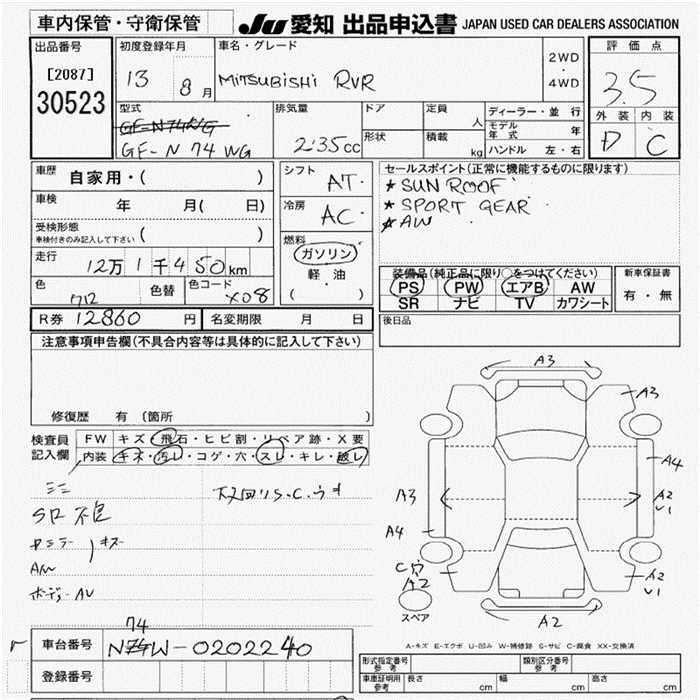 車内保管・守衛保管 JU 愛知 出品申込書 JAPAN USED CAR DEALERS ASSOCIATION
出品番号 初度登録年月 車名・グレード 評価点
[2087] 13 8月 MITSUBISHI RVR 2WD ・ 4WD 3.5
30523
型式 排気量 ドア 定員 人 ディーラー・並 行 外装 内装
GF-N74WG モデル年式 年 D C
GF-N 74 WG 2.35cc 形状 積載 kg ハンドル 左・右
車歴 自家用・( ) シフト AT セールスポイント(正常に機能するものに限ります)
★ SUN ROOF
車検 年 月( 日) 冷房 AC ★ SPORT GEAR
★ AW
受検形態 ( )
車検付きのみ記入して下さい
燃料 ガソリン
軽・油
( )
走行 12万 1千 450km
装備品(純正品に限り○をつけてください) 新車保証書
PS PW エアB AW 有・無
SR ナビ TV カワシート
色 712 色替 色コード X08
R券 12860 円 名変期限 月 日 後日品
注意事項申告欄(不具合内容等は具体的に記入して下さい)
修復歴 有 〔箇所 〕
検査員記入欄 FW キズ・飛石・ヒビ割・リペア跡・X要
内装 キズ・汚レ・コゲ・穴・スレ・キレ・破レ
不良
キズ
AW
ボデー AU
A3
A3
A4
A3 A2
U1
A4
A2
A2
U1
A2
スペア
A-キズ E-エクボ U-凹み W-補修跡 S-サビ C-腐食 XX-交換済
74
車台番号 N74W-0202240
登録番号
形式指定番号 参考 類別区分番号 参考
車庫証明用 参考 長さ cm 幅 cm 高さ cm